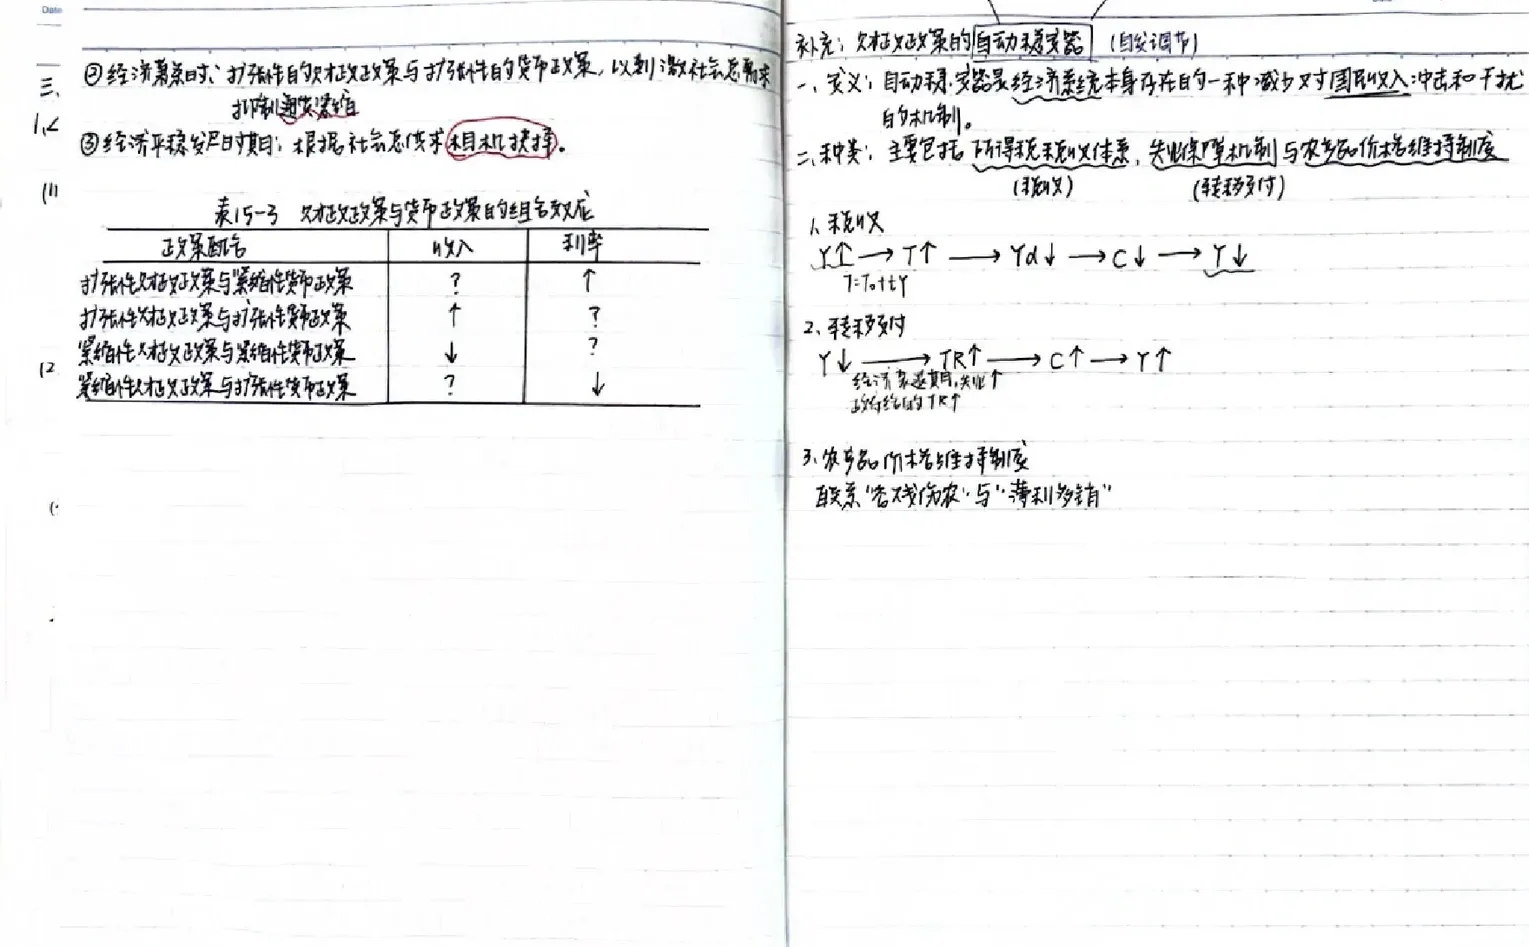 Date
②经济萧条时、扩张性的财政政策与扩张性的货币政策，以刺激社会总需求
抑制通货紧缩
③经济平稳发展时期：根据社会总供求相机抉择。
三、
1、
(1)
(2
表15-3 财政政策与货币政策的组合效应
政策配合 收入 利率
扩张性财政政策与紧缩性货币政策 ? ↑
扩张性财政政策与扩张性货币政策 ↑ ?
紧缩性财政政策与紧缩性货币政策 ↓ ?
紧缩性财政政策与扩张性货币政策 ? ↓
补充：财政政策的自动稳定器 (自发调节)
一、定义：自动稳定器是经济系统本身存在的一种减少对国民收入冲击和干扰
的机制。
二、种类：主要包括所得税税收体系，失业保障机制与农产品价格维持制度
(税收) (转移支付)
1、税收
Y↑→T↑→Yd↓→C↓→Y↓
T=T₀+tY
2、转移支付
Y↓→TR↑→C↑→Y↑
经济衰退期，失业↑
政府给的TR↑
3、农产品价格维持制度
联系“谷贱伤农”与“薄利多销”